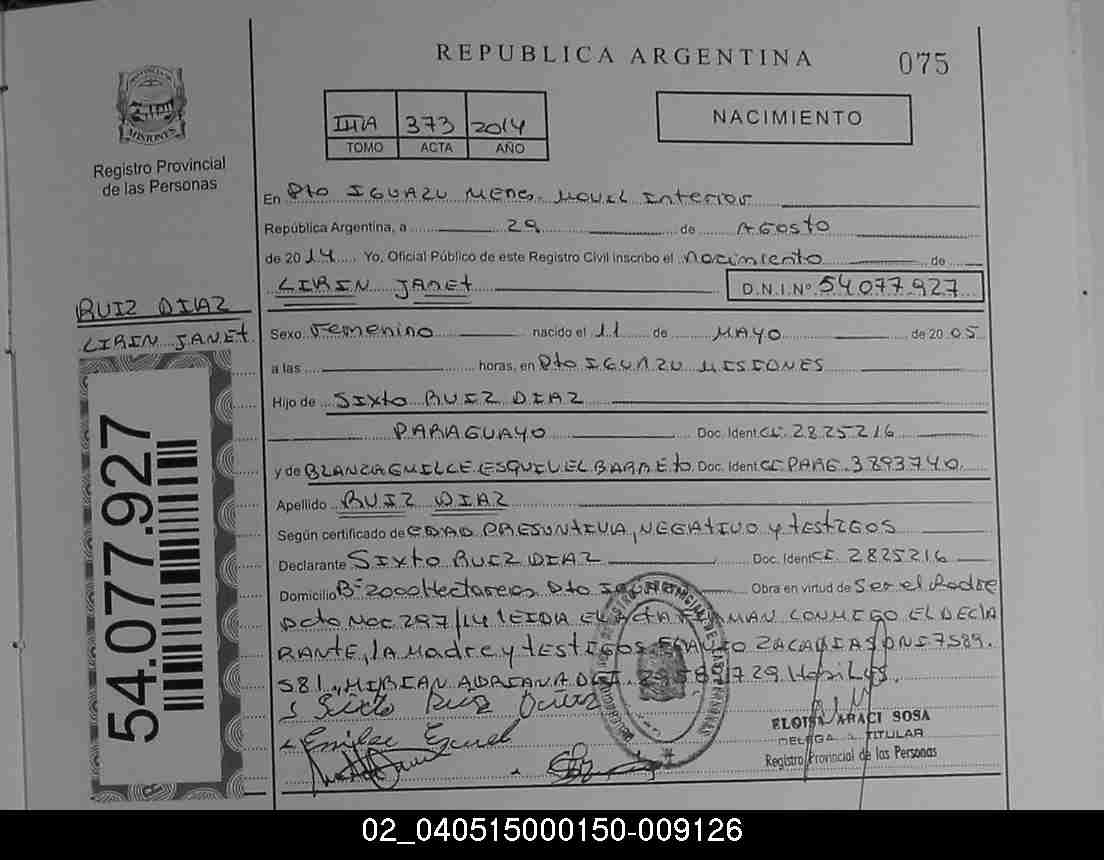 REPUBLICA ARGENTINA
075
PROVINCIA DE
MISIONES
Registro Provincial
de las Personas
IIIIA 373 2014
TOMO ACTA AÑO
NACIMIENTO
En Pto IGUAZU Mnes. Movil Interior
República Argentina, a 29 de AGOSTO
de 2014 Yo, Oficial Público de este Registro Civil inscribo el nacimiento de
LIRIN JANET D.N.I.Nº 54077.927
RUIZ DIAZ
LIRIN JANET
Sexo Femenino nacido el 11 de MAYO de 2005
a las horas, en Pto IGUAZU MISIONES
Hijo de Sixto RUIZ DIAZ
PARAGUAYO Doc. Ident CI. 2825216
y de BLANCA EMILCE ESQUIVEL BARRETO Doc. Ident CI PARG. 3893740.
Apellido RUIZ DIAZ
Según certificado de EDAD PRESUNTIVA, NEGATIVO y testigos
Declarante Sixto RUIZ DIAZ Doc. Ident CI. 2825216
Domicilio Bº 2000 Hectareas Pto Obra en virtud de Ser el Padre
Dcto Nac 297/14 LEIDA EL ACTA CONMIGO EL DECLA
RANTE, la Madre y testigos DNI 7589.
581., MIRIAN ADRIANA 729 Habiles.
54.077.927
ELOISA ARACI SOSA
DELEGADA TITULAR
Registro Provincial de las Personas
02_040515000150-009126